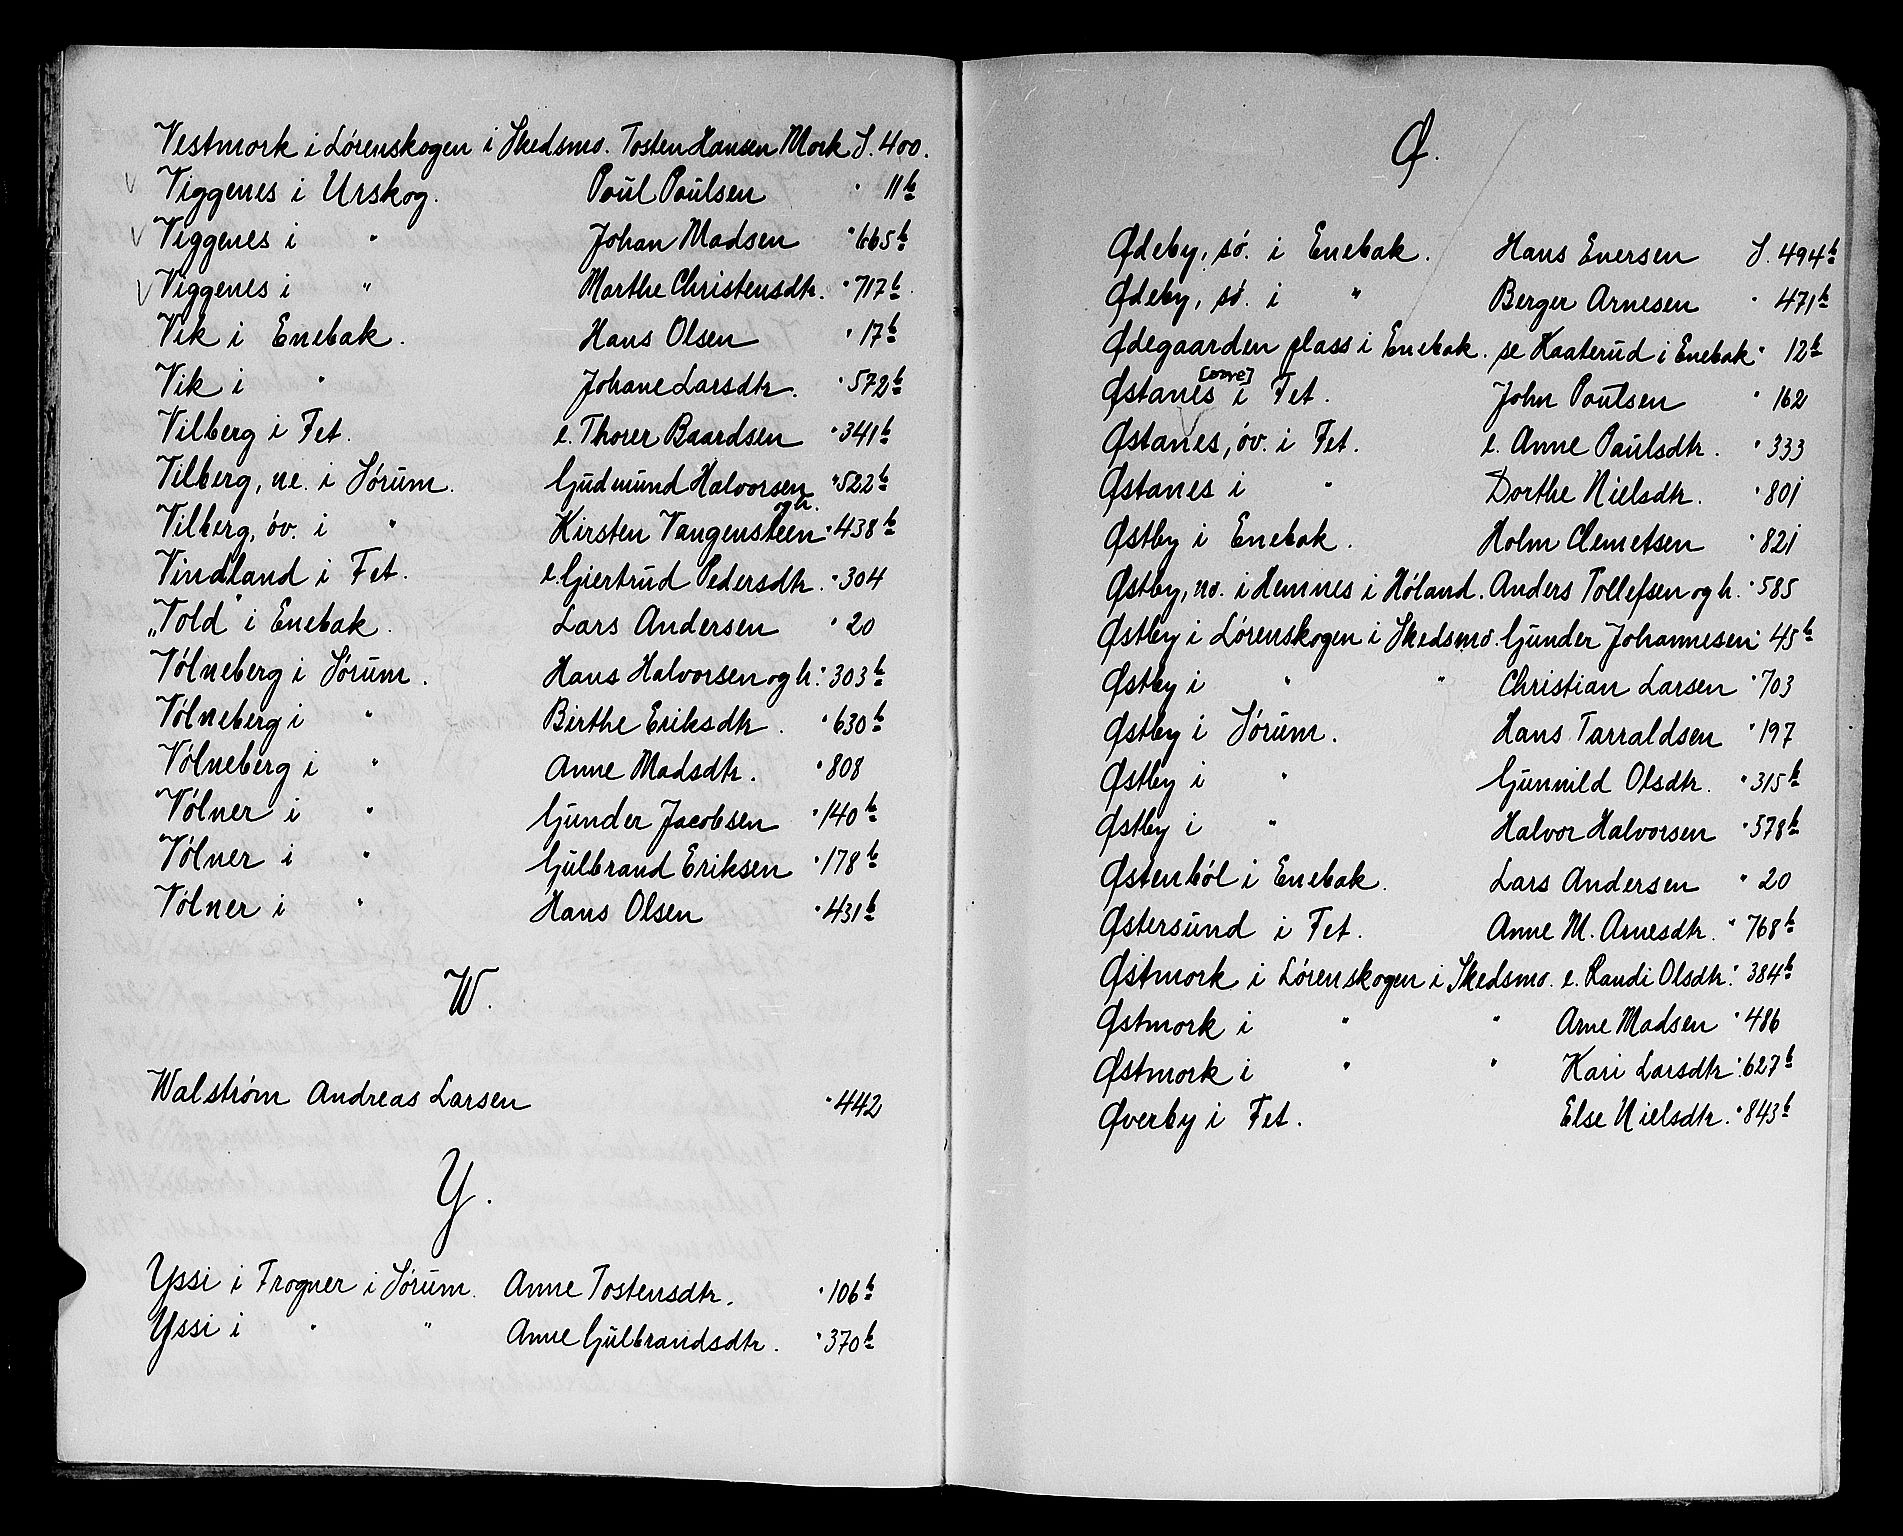 Vestmork i Lórenskogen i Skedsmo. Tosten Hansen Mork S. 400.
Viggenes i Urskog. Poul Poulsen " 11b
Viggenes i " Johan Madsen " 665b
Viggenes i " Marthe Christensdtr. " 717b
Vik i Enebak. Hans Olsen " 17b
Vik i " Johane Larsdtr. " 572b
Vilberg i Fet. e. Thorer Baardsen " 341b
Vilberg, ne. i Sórum. Gudmund Halvorsen " 522b
Vilberg, óv. i " Kirsten Vangensteen og h. " 438b
Vindland i Fet. e. Giertrud Pedersdtr. " 304
„Vold" i Enebak. Lars Andersen " 20
Vólneberg i Sórum. Hans Halvorsen og h. " 303b
Vólneberg i " Birthe Eriksdtr. " 630b
Vólneberg i " Anne Madsdtr. " 808
Vólner i " Gunder Jacobsen " 140b
Vólner i " Gulbrand Eriksen " 178b
Vólner i " Hans Olsen " 431b
W.
Walstrøm Andreas Larsen " 442
Y.
Yssi i Frogner i Sórum. Anne Tostensdtr. " 106b
Yssi i " " Anne Gulbrandsdtr. " 370b
Ø.
Ødeby, só. i Enebak. Hans Enersen S. 494b
Ødeby, só. i " Berger Arnesen " 471b
Ødegaarden plass i Enebak. se Haaterud i Enebak " 12b
Østanes [øvre] i Fet. John Poulsen " 162
Østanes, óv. i Fet. e. Anne Paulsdtr. " 333
Østanes i " Dorthe Nielsdtr. " 801
Østby i Enebak. Holm Clemetsen " 821
Østby, no. i Hemnes i Høland. Anders Tollefsen og h. " 585
Østby i Lórenskogen i Skedsmo. Gunder Johannesen " 45b
Østby i " " Christian Larsen " 703
Østby i Sórum. Hans Tarraldsen " 197
Østby i " Gunnild Olsdtr. " 315b
Østby i " Halvor Halvorsen " 578b
Østenból i Enebak. Lars Andersen " 20
Østersund i Fet. Anne M. Arnesdtr. " 768b
Østmork i Lórenskogen i Skedsmo. e. Randi Olsdtr. " 384b
Østmork i " " Arne Madsen " 486
Østmork i " " Kari Larsdtr " 627b
Øverby i Fet. Else Nielsdtr. " 843b